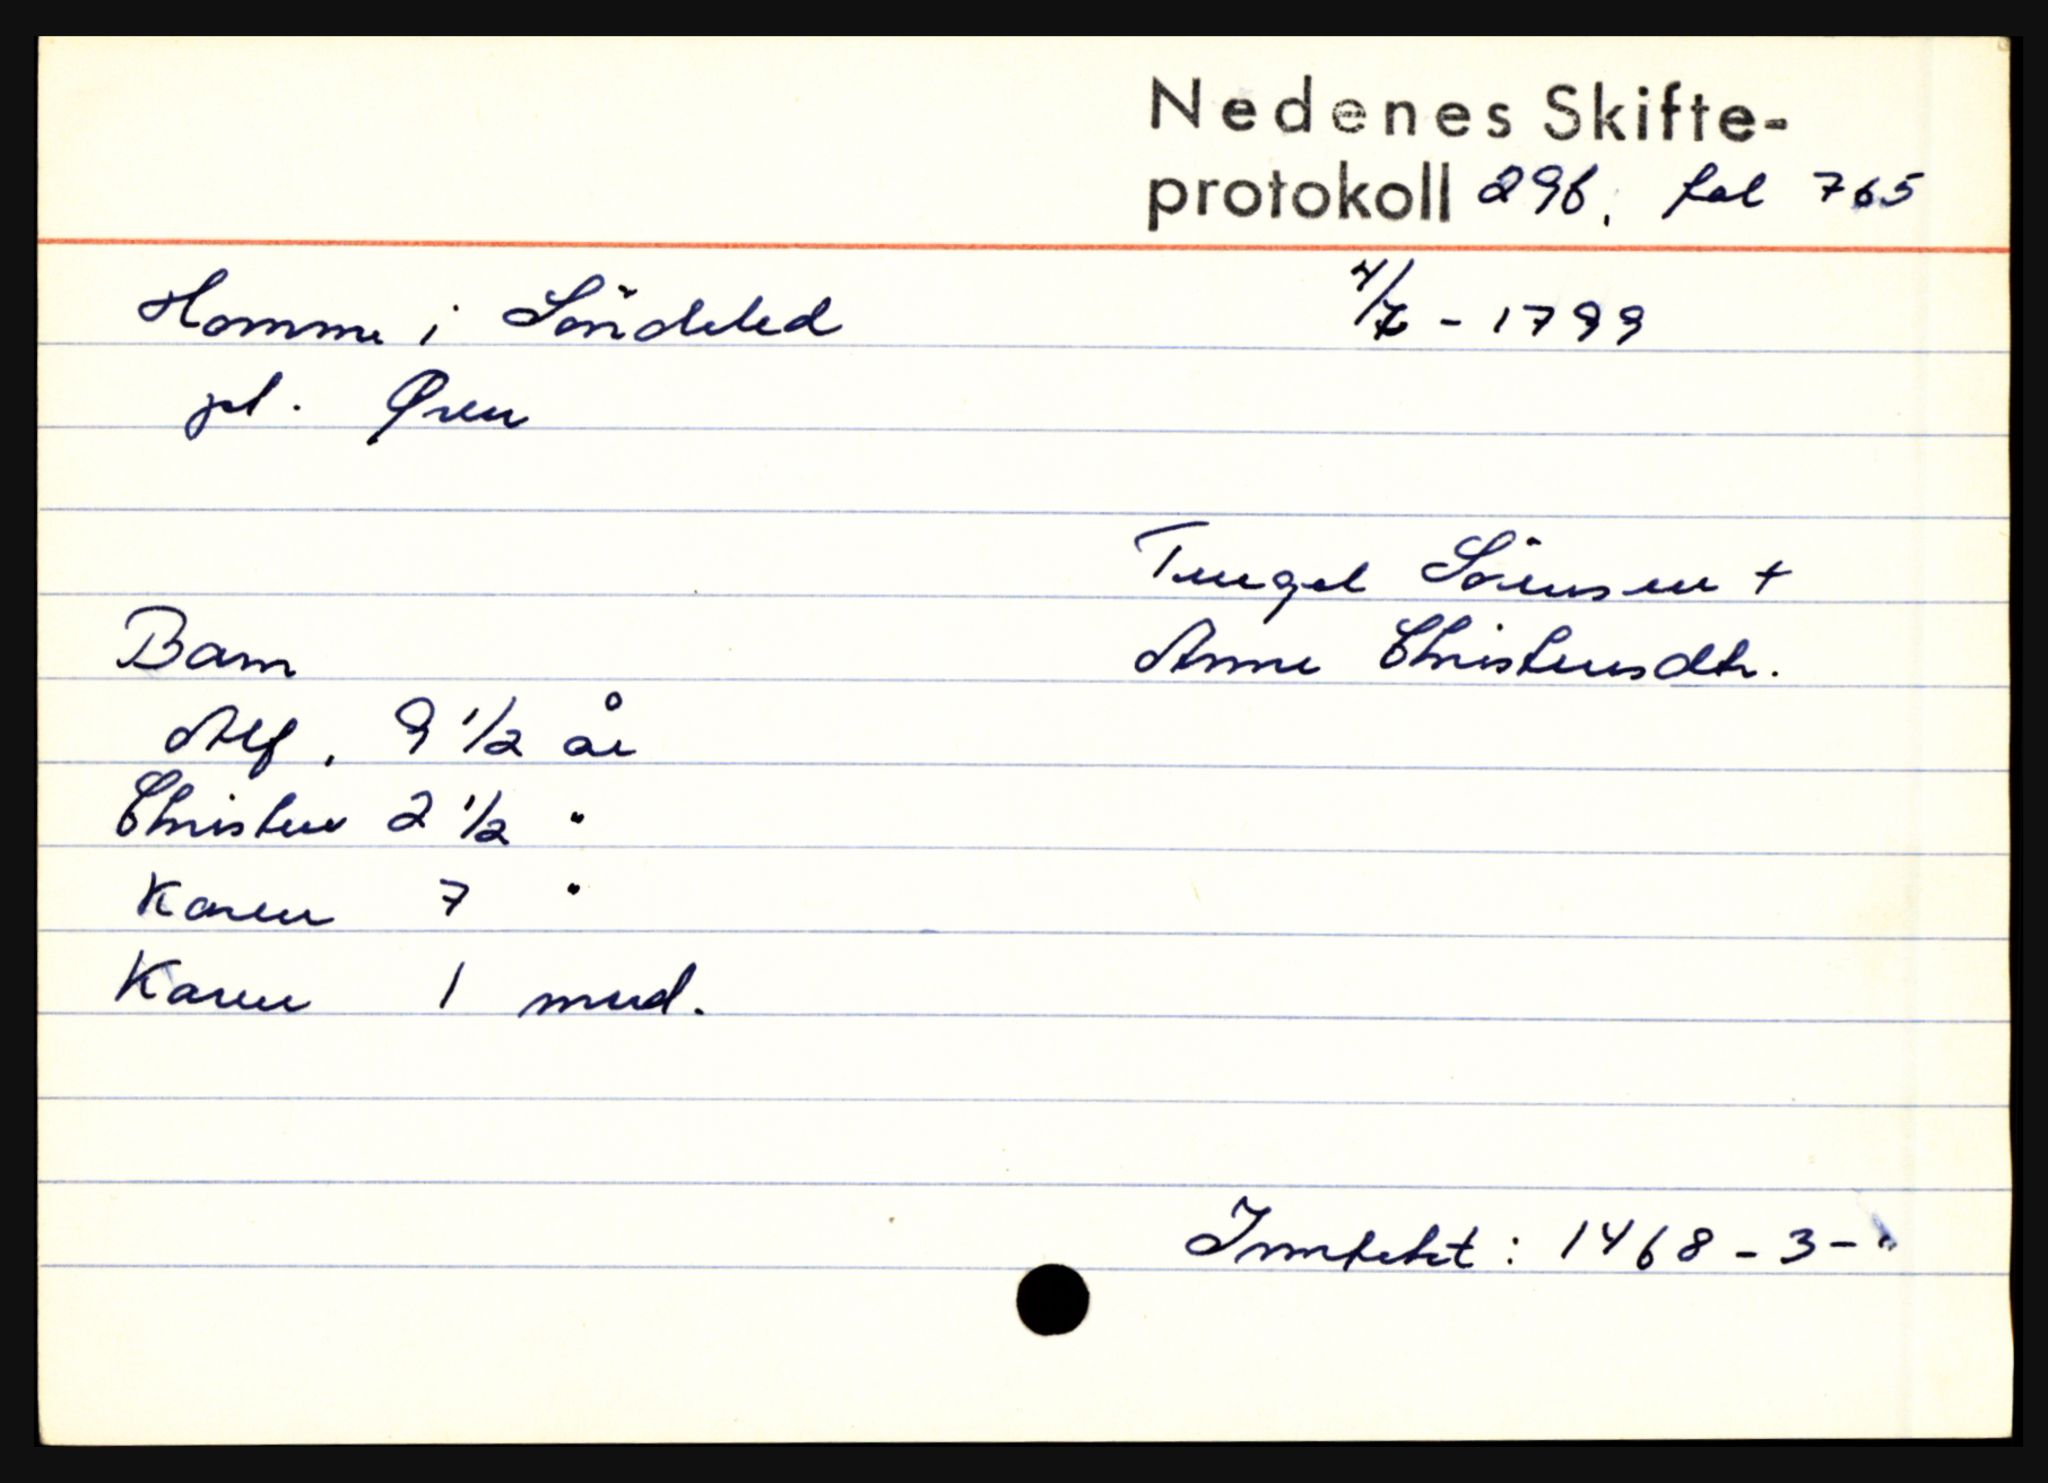 Nedenes Skifte-
protokoll 29b, fol 765
Homme i Söndeled 4/7 - 1799
pl. Øren
Tergel Sörensen +
Barn Anne Christensdtr.
Alf, 9 1/2 år
Christen 2 1/2 "
Karen 7 "
Karen 1 mnd.
Inntekt: 1468 - 3 - "